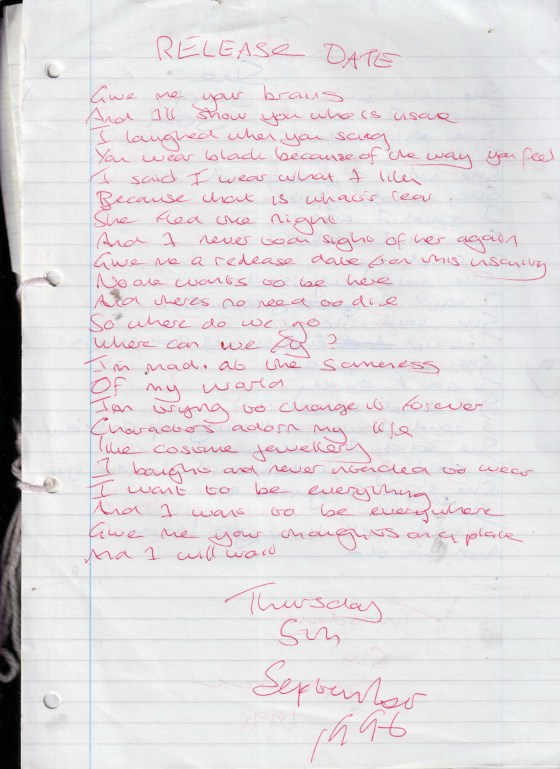 RELEASE DATE
Give me your brains
And I'll show you who is insane
I laughed when you sang
You wear black because of the way you feel
I said I wear what I like
Because that is what's real
She fled the night
And I never took sight of her again
Give me a release date from this insanity
No one wants to be here
And theres no need to die
So where do we go
Where can we fly?
I'm mad at the sameness
Of my world
I'm trying to change it forever
Characters adorn my life
like costume jewellery
I bought and never intended to wear
I want to be everything
And I want to be everywhere
Give me your thoughts on a plate
And I will wait
Thursday
5th
September
1996